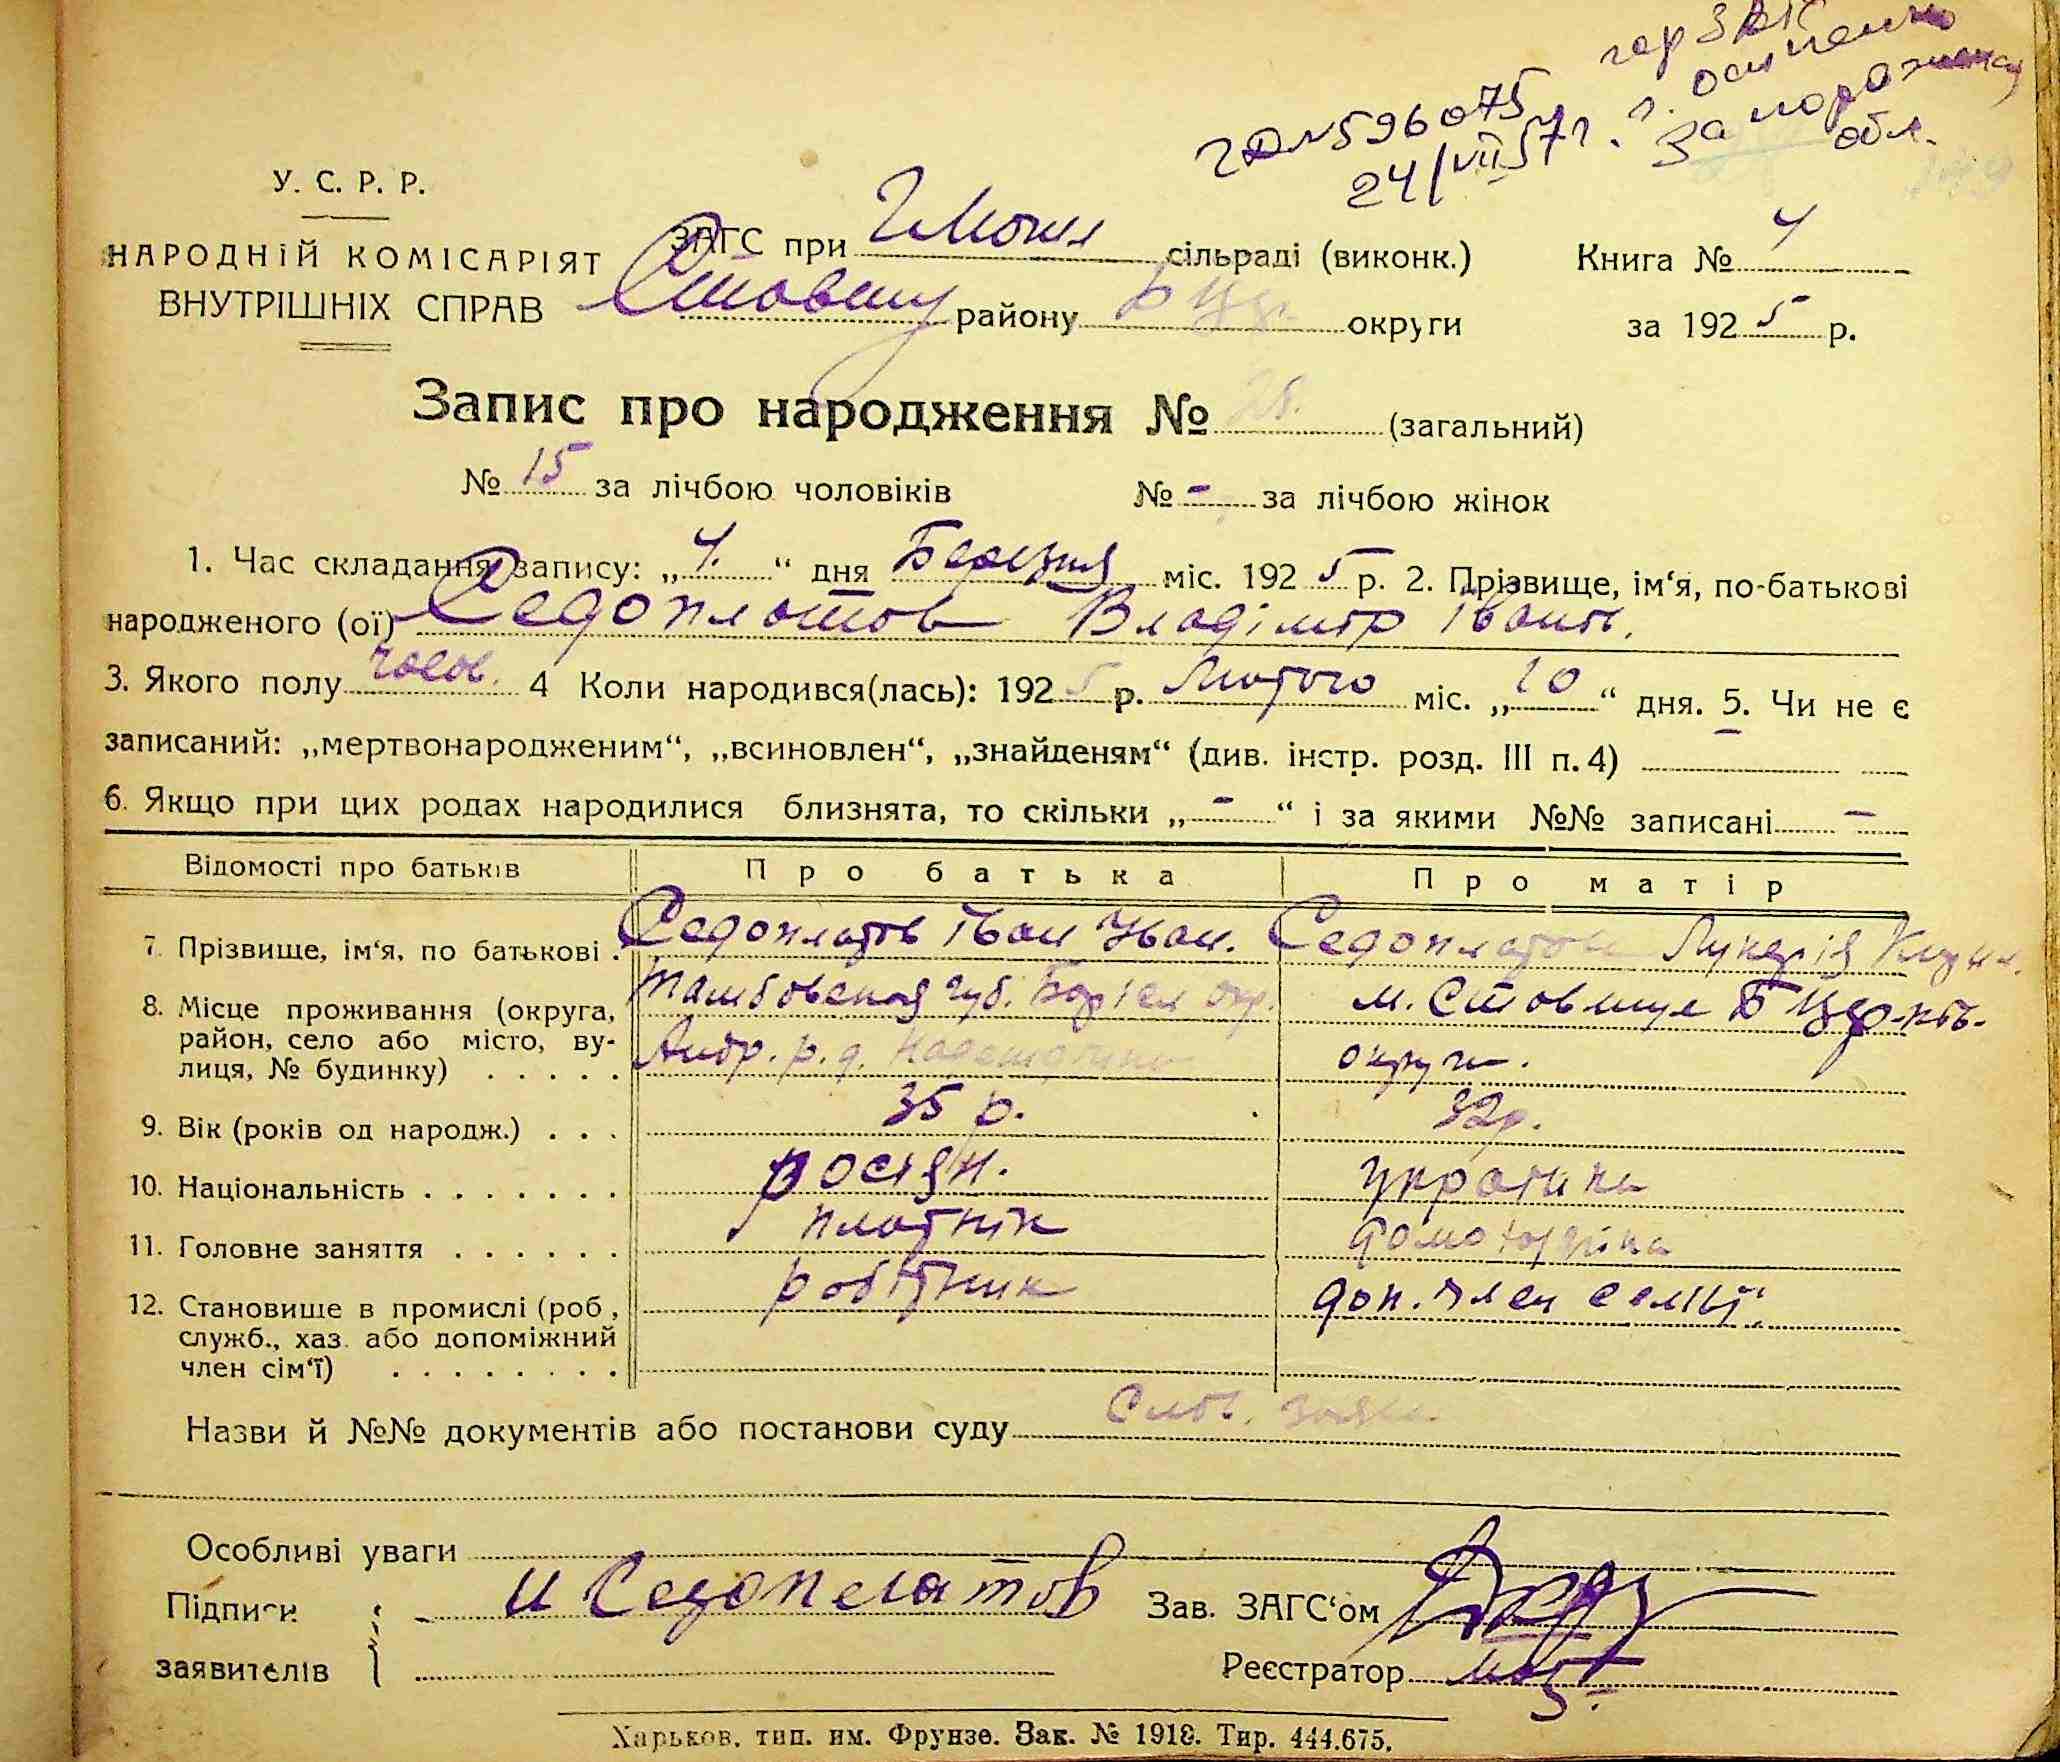 гор ЗАГС
г. Осипенко
Запорожской
обл.
ГД № 596075
24/VII 57 г.
У. С. Р. Р.
НАРОДНІЙ КОМІСАРІЯТ
ВНУТРІШНІХ СПРАВ
ЗАГС при сільраді (виконк.) Книга № 4
району Б Цер. округи за 1925 р.
Запис про народження № 28. (загальний)
№ 15 за лічбою чоловіків № - за лічбою жінок
1. Час складання запису: „4.“ дня Березня міс. 1925 р. 2. Прізвище, ім‘я, по-батькові
народженого (ої) Седоплатов Владімір Іван.
3. Якого полу чолов. 4 Коли народився(лась): 1925 р. Лютого міс. „10“ дня. 5. Чи не є
записаний: „мертвонародженим“, „всиновлен“, „знайденям“ (див. інстр. розд. III п. 4) -
6. Якщо при цих родах народилися близнята, то скільки „-“ і за якими №№ записані -
Відомості про батьків Про батька Про матір
7. Прізвище, ім‘я, по батькові . Седоплатов Іван Иван. Седоплатов Лукерія
8. Місце проживання (округа, район, село або місто, ву-лиця, № будинку) . . . . . Тамбовская губ. окр. м. Ставище Б Церків. округи.
9. Вік (років од народж.) . . . 35 р. 32 р.
10. Національність . . . . . . . росіян. українка
11. Головне заняття . . . . . . плотнік домохазяїка
12. Становище в промислі (роб, служб., хаз. або допоміжний член сім‘ї) . . . . . . . . робітник доп. член семьї.
Назви й №№ документів або постанови суду заява
Особливі уваги
Підписи И Седоплатов Зав. ЗАГС‘ом
заявителів Реєстратор
Харьков. тип. им. Фрунзе. Зак. № 1918. Тир. 444.675.